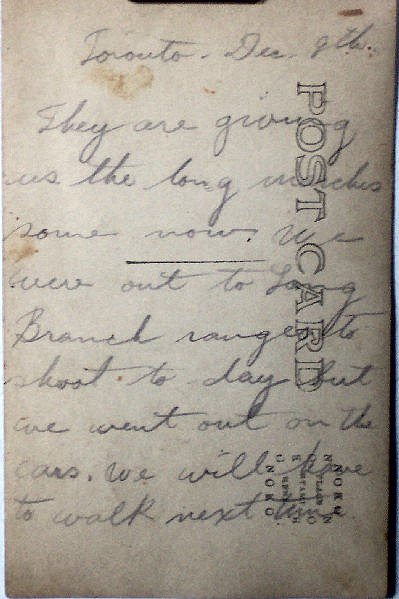 Toronto - Dec. 9th.
They are giving
us the long marches
some now. We
were out to Long
Branch ranges to
shoot to-day but
we went out on the
cars. We will have
to walk next time.
POST CARD
NOKO